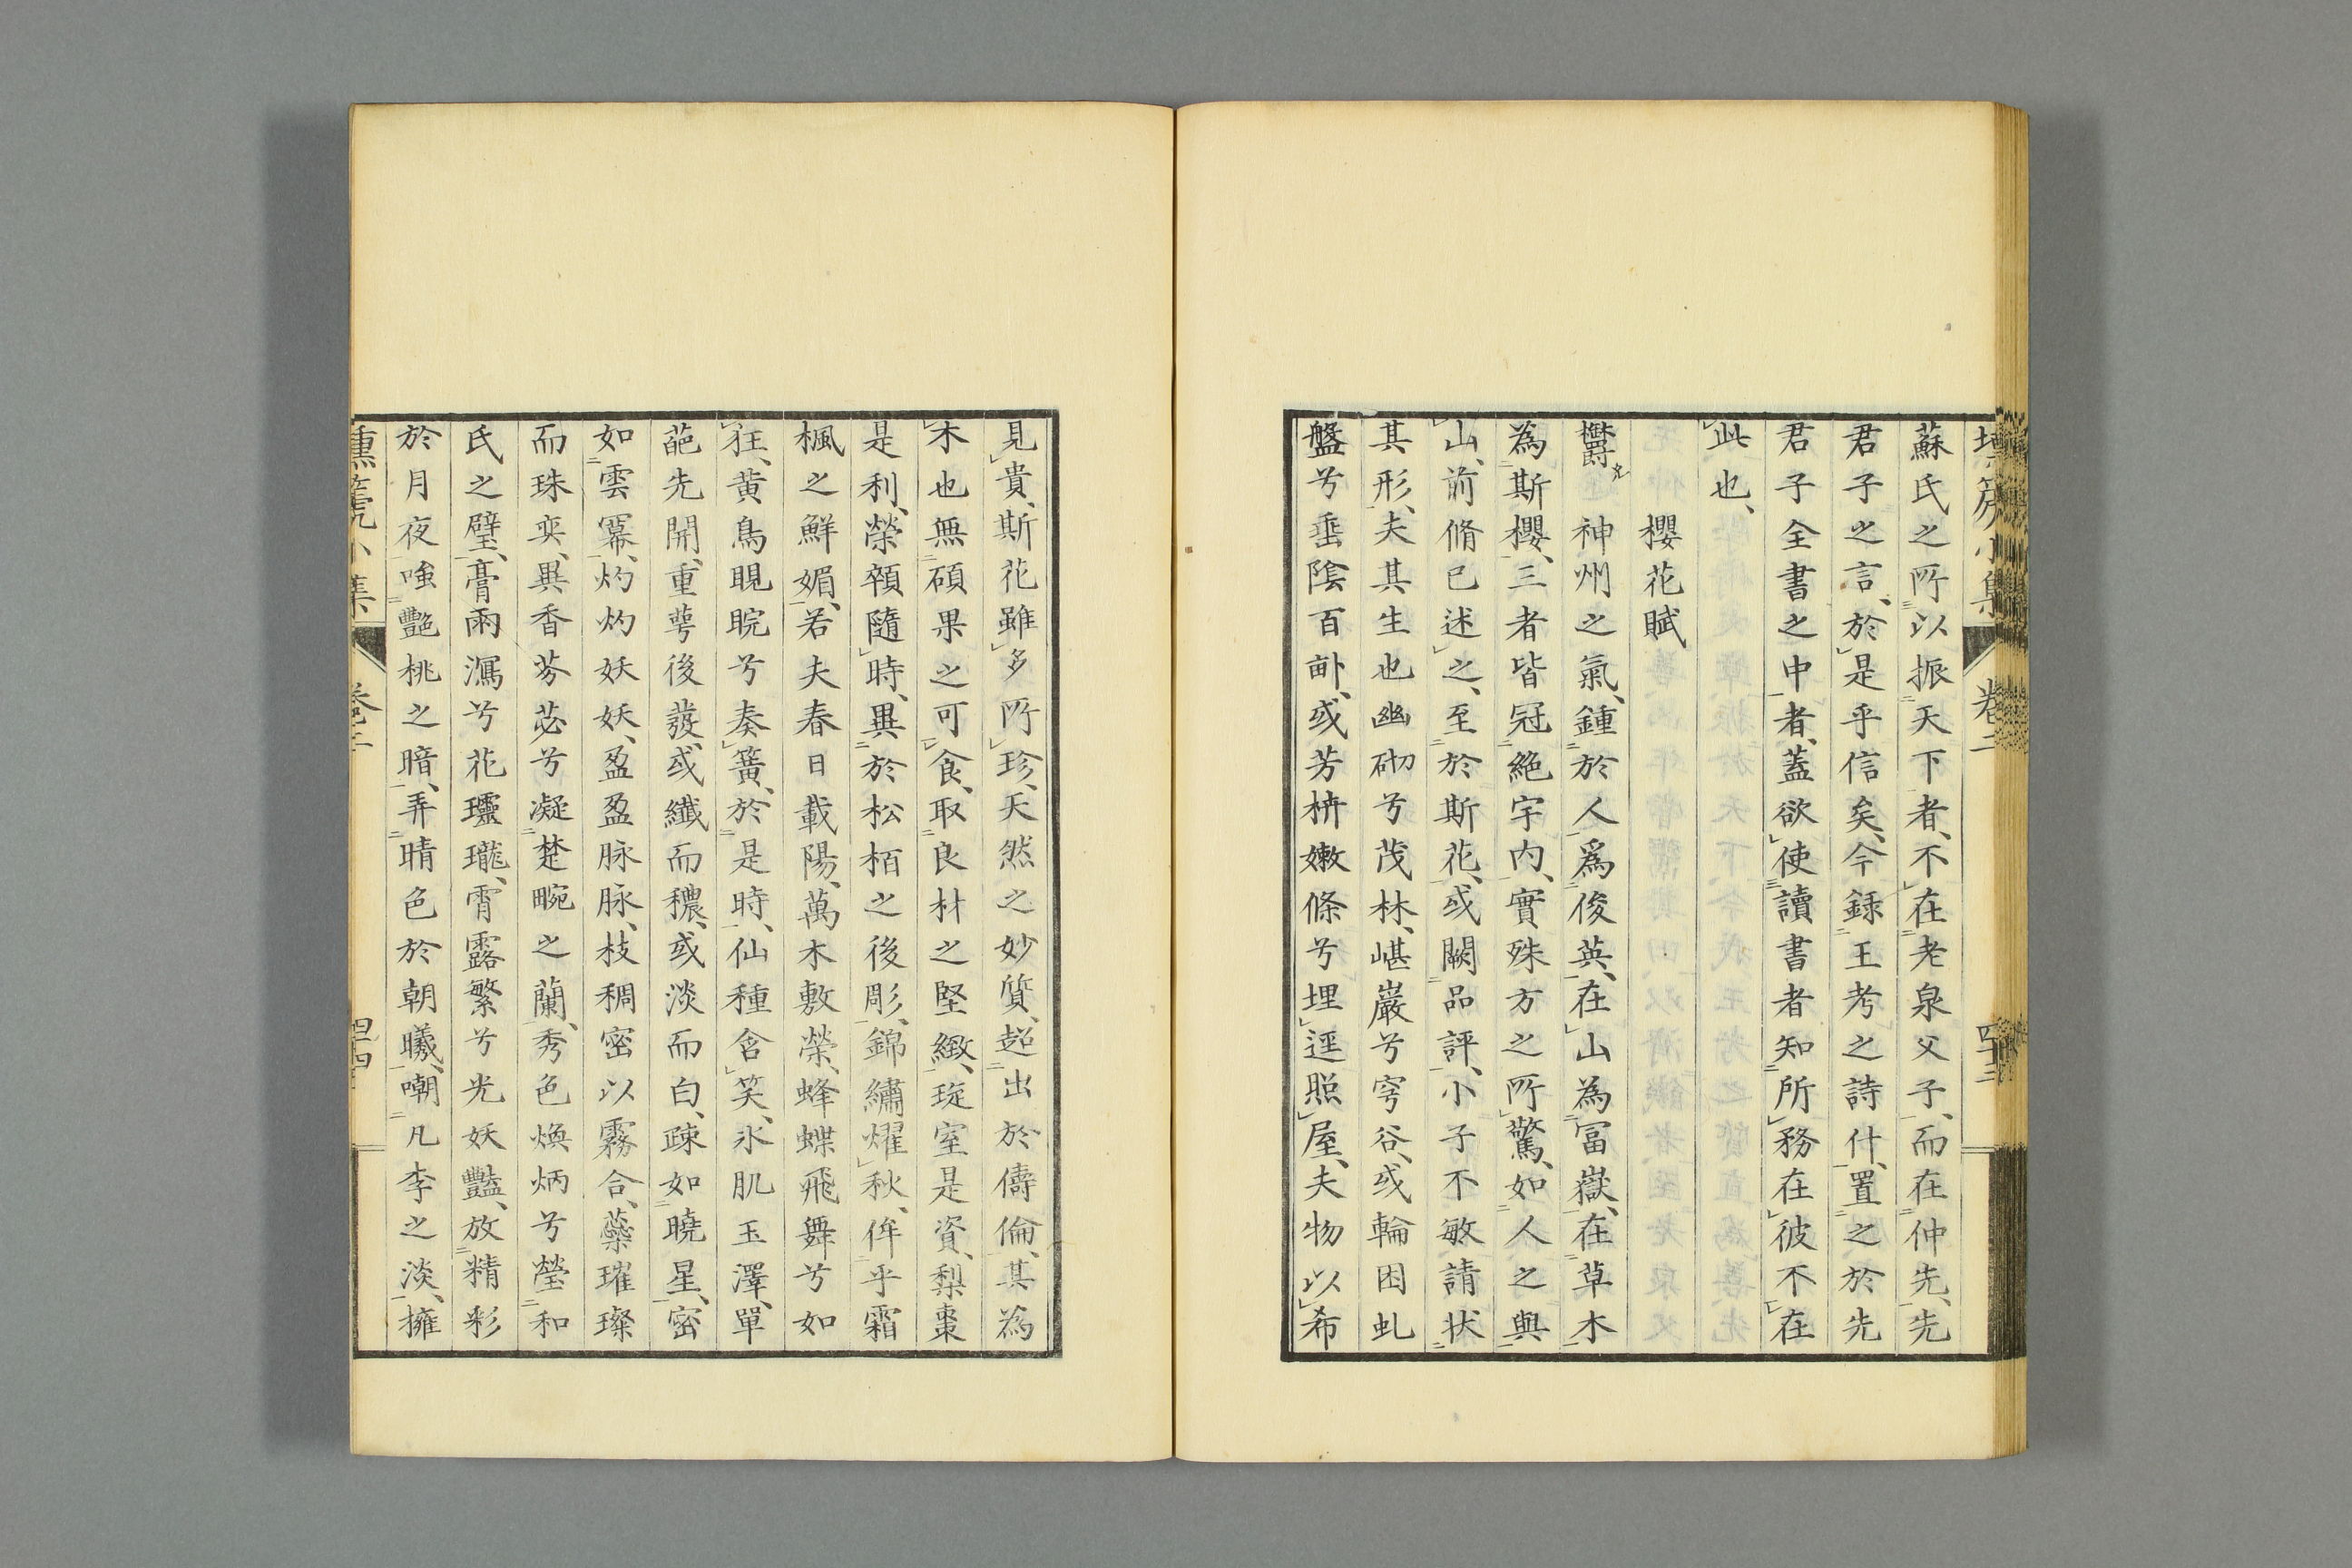 蘇氏之所以振天下者、不在老泉父子、而在仲先、先
君子之言、於是乎信矣、今録王考之詩什、置之於先
君子全書之中者、蓋欲使讀書者知所務在彼不在
此也、
櫻花賦
欝々神州之氣、鍾於人爲俊英、在山為冨嶽、在草木
為斯櫻、三者皆冠絶宇内、實殊方之所驚、如人之與
山、前脩已述之、至於斯花、或闕品評、小子不敏請状
其形、夫其生也幽砌兮茂林、嵁巖兮穹谷、或輪囷虬
盤兮垂陰百畝、或芳枿嫩條兮埋逕照屋、夫物以希
見貴、斯花雖多所珍、天然之妙質、超出於儔倫、其為
木也無碩果之可食、取良材之堅緻、琁室是資、梨棗
是利、榮顇隨時、異於松栢之後彫、錦繡燿秋、侔乎霜
楓之鮮媚、若夫春日載陽、萬木敷榮、蜂蝶飛舞兮如
狂、黄鳥睍睆兮奏簧、於是時、仙種含笑、氷肌玉澤、單
葩先開、重萼後發、或纖而穠、或淡而白、疎如曉星、密
如雲羃、灼灼妖妖、盈盈脉脉、枝稠密以霧合、蘂璀璨
而珠奕、異香芬苾兮凝楚畹之蘭、秀色煥炳兮瑩和
氏之璧、膏雨瀉兮花瓏瓏、霄露繁兮光妖豔、放精彩
於月夜嗤艷桃之暗、弄晴色於朝曦、嘲凡李之淡、擁
壎篪小集
卷二
四十三
卷二
四十四